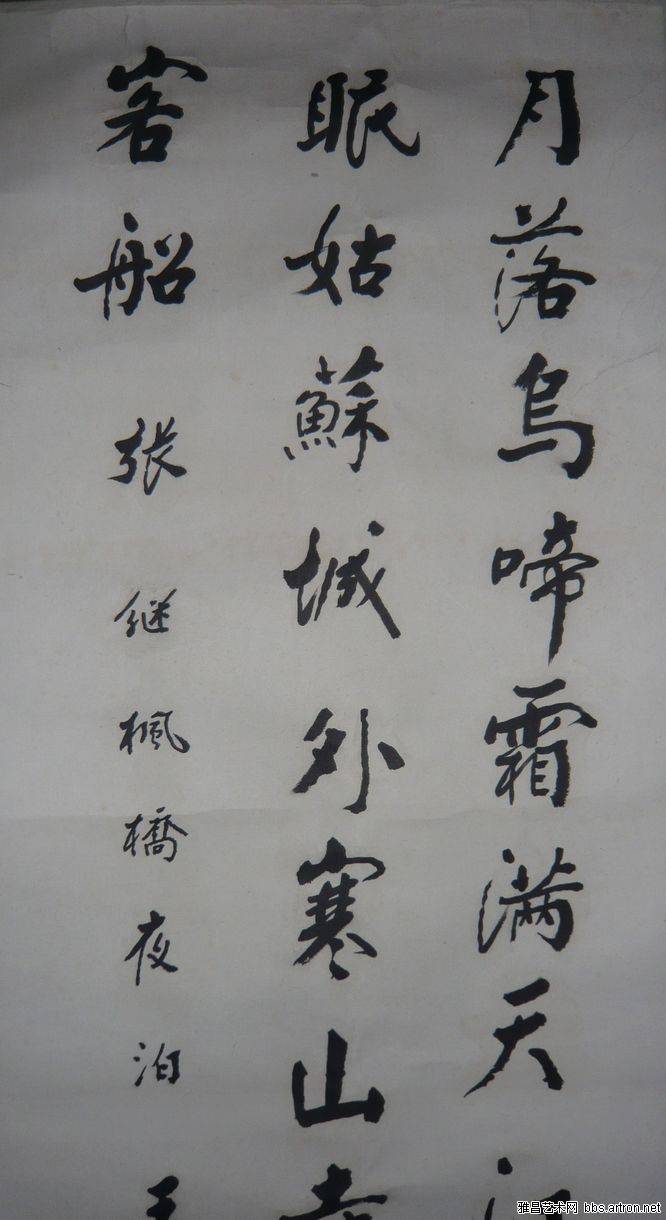 月落烏啼霜满天江
眠姑蘇城外寒山寺
客船 张继楓橋夜泊
雅昌艺术网 bbs.artron.net